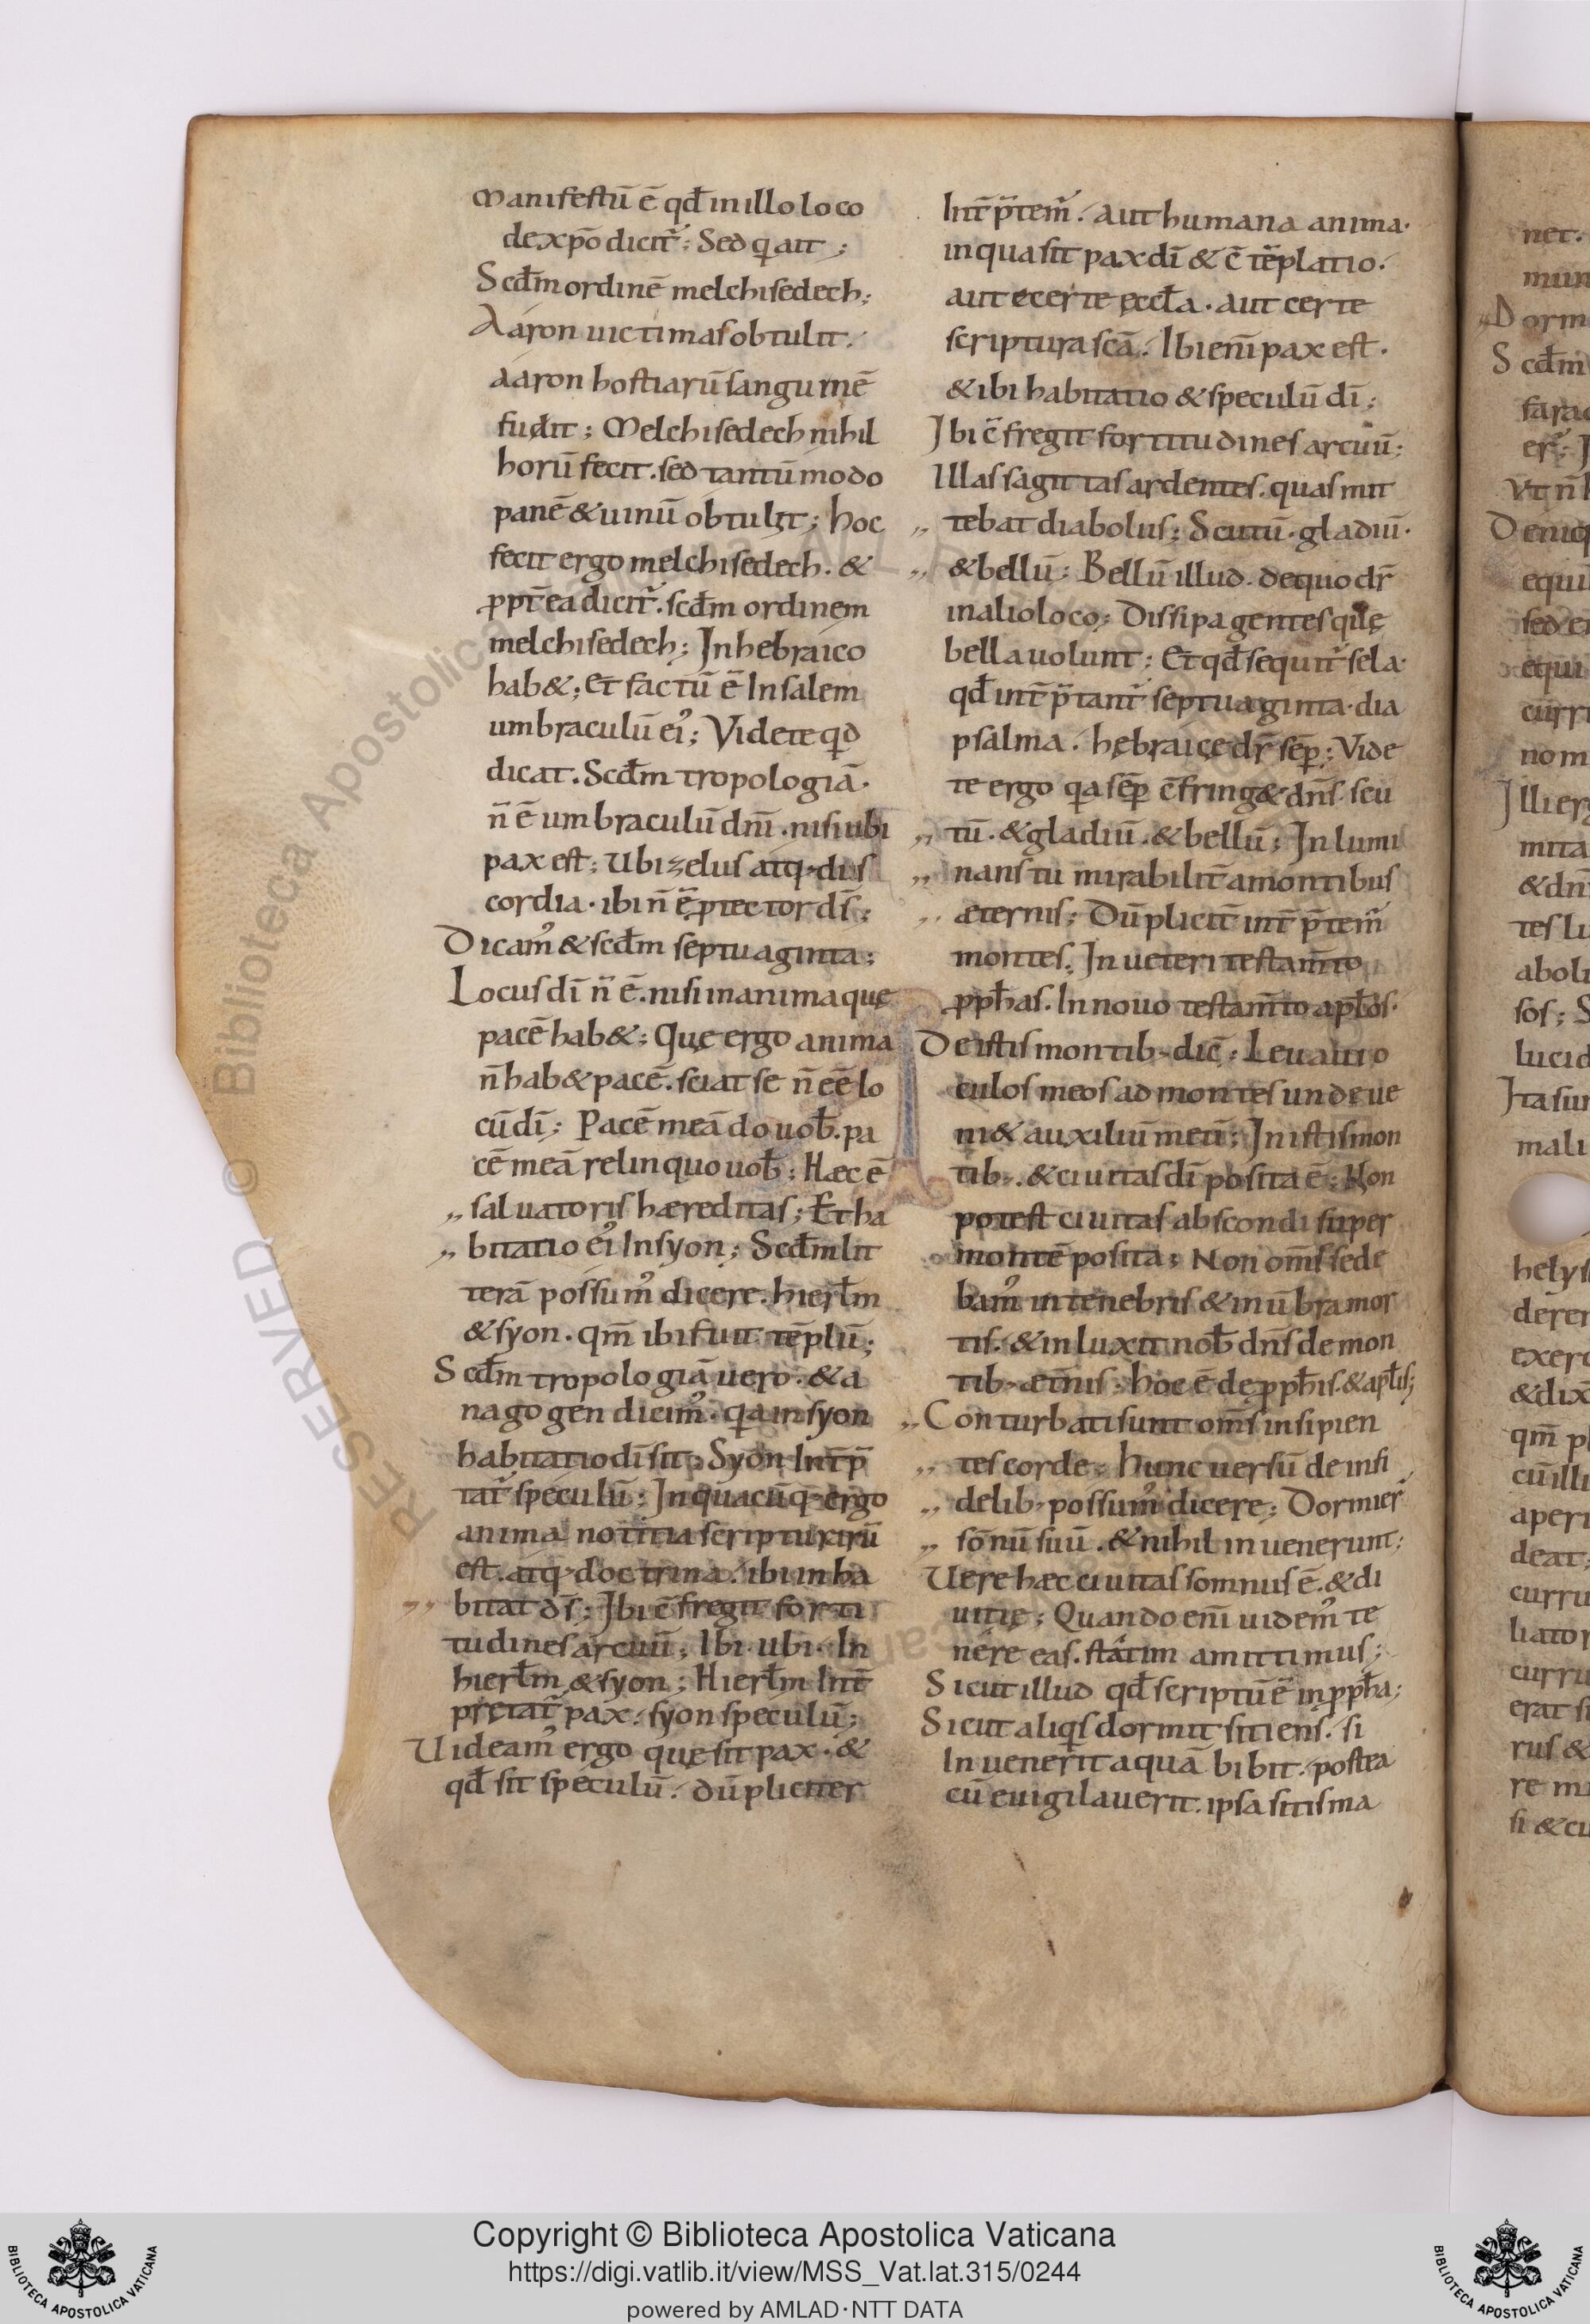 Manifestū ē qđ in illo loco
de xp̄o dicit᷑; Sed q̄ ait;
Scđm ordinē melchisedech;
Aaron uictimas obtulit.
aaron hostiarū sanguinē
fudit; Melchisedech nihil
horū fecit. sed tantūmodo
panē & uinū obtulit; hoc
fecit ergo melchisedech. &
ꝓpt̄ ea dicit᷑. scđm ordinem
melchisedech; In hebraico
hab&; et factū ē In salem
umbraculū ei᾿; Videte qd
dicat. Scđm tropologiā.
n̄ ē umbraculū dn̄i. nisi ubi
pax est; Ubi zelus atq; dis
cordia. ibi n̄ ē ꝓtector dī;
Dicam᾿ & scđm septuaginta;
Locus dī n̄ ē. nisi in anima quę
pacē hab&; Quę ergo anima
n̄ hab& pacē. sciat se n̄ eē lo
cū dī; Pacē meā do uob̄. pa
cē meā relinquo uob̄; Hæc ē
„ saluatoris hæreditas; Et ha
„ bitatio ei᾿ In syon; Scđm lit
terā possum᾿ dicere. hierłm
& syon. qm̄ ibi fuit tēplū;
Scđm tropologiā uero. & a
nagogen dicim᾿. qa in syon
habitatio dī sit; Syon Int̄p̄
tat᷑ speculū; In quacūq; ergo
anima notitia scripturarū
est. atq; doctrina. ibi inha
„ bitat ds̄; Ibi c̄fregit forti
tudines arcuū; Ibi. ubi. In
hierłm & syon; Hierłm Int̄
pretat᷑ pax. syon speculū;
Uideam᾿ ergo quę sit pax. &
qđ sit speculū. dūpliciter
Int̄p̄tem᷑. aut humana anima.
in qua sit pax dī & c̄tēplatio.
aut ecerte ęccła. aut certe
scriptura scā. Ibi enī pax est.
& ibi habitatio & speculū dī;
Ibi c̄fregit fortitudines arcuū;
Illas sagittas ardentes. quas mit
„ tebat diabolus; Scutū. gladiū.
„ & bellū; Bellū illud. de quo dr̄
in alio loco; Dissipa gentes quę
bella uolunt; Et qđ sequit᷑ sela.
qđ int̄p̄tant᷑ septuaginta. dia
psalma. hębraicę dr̄ sēp; Vide
te ergo qa sēp c̄fring& dn̄s scu
„ tū. & gladiū. & bellū; Inlumi
„ nans tu mirabilit̄ a montibus
„ æternis; Dūplicit̄ int̄p̄tem᷑
montes; In ueteri testam̄to
ꝓph̄as. In nouo testam̄to apłos.
De istis montib; dic̄; Leuaui o
culos meos ad montes unde ue
ni& auxiliū meū; In istis mon
tib;. & ciuitas dī posita ē; Non
potest ciuitas abscondi super
montē posita; Non om̄s sede
bam᾿ in tenebris & in ūbra mor
tis. & inluxit nob̄ dn̄s de mon
tib; æt̄nis; hoc ē de ꝓph̄is. & apłis;
„ Conturbati sunt om̄s insipien
„ tes corde; Hunc uersū de infi
„ delib; possum᾿ dicere; Dormier᷑
„ sōnū suū. & nihil inuenerunt;
Uere hæc ciuitas somnus ē. & di
uitię; Quando enī uidem᾿ te
nere eas. statim amittimus;
Sicut illud qđ scriptū ē in ꝓph̄a;
Sicut aliqs dormit sitiens. si
Inuenerit aquā bibit. postea
cū euigilauerit. ipsa sitis ma
Copyright © Biblioteca Apostolica Vaticana
https://digi.vatlib.it/view/MSS_Vat.lat.315/0244
powered by AMLAD·NTT DATA